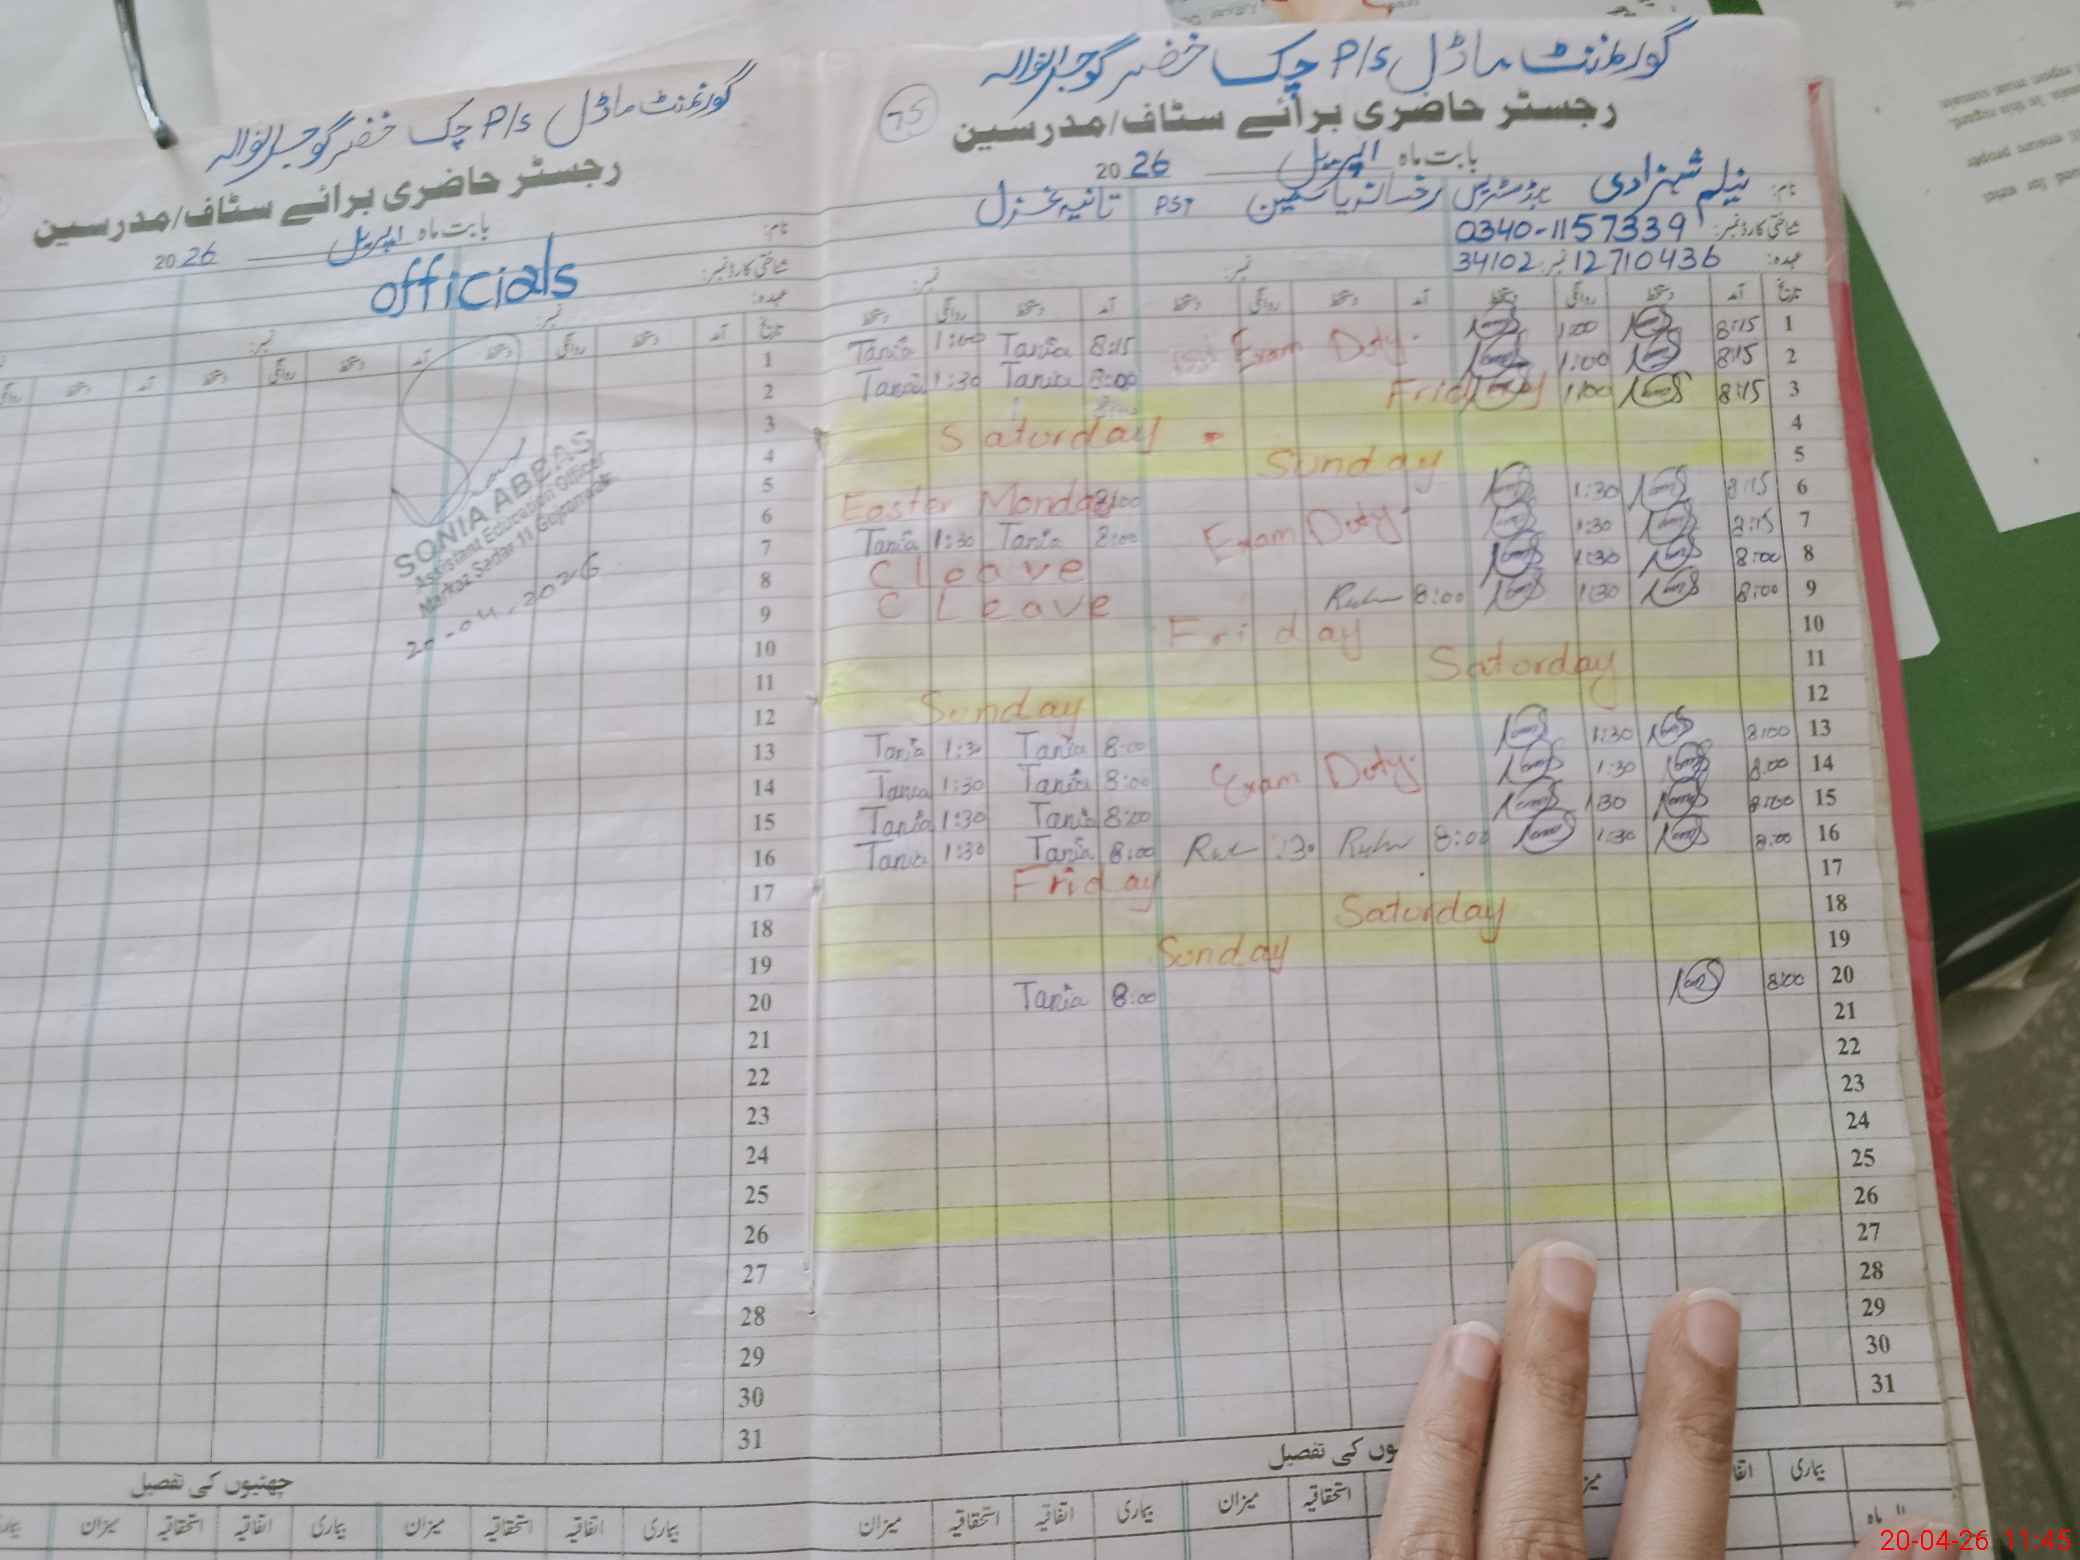 گورنمنٹ ماڈل P/S چک خضر گوجرانوالہ
75
رجسٹر حاضری برائے سٹاف/مدرسین
بابت ماہ اپریل 2026
نام: نیلم شہزادی ہیڈمسٹریس رخسانہ یاسمین PST تانیہ غزل
شناختی کارڈ نمبر: 0340-1157339
عہدہ: 34102 نمبر: 12710436
نمبر: نمبر:
تاریخ آمد دستخط روانگی دستخط آمد دستخط روانگی دستخط آمد دستخط روانگی دستخط
1 8:15 1:00 Exam Duty. 8:15 Tania 1:00 Tania
2 8:15 1:00 8:00 Tania 1:30 Tania
3 8:15 1:00 Friday
4 Saturday
5 Sunday
6 8:15 1:30 Easter Monday 8:00
7 8:15 1:30 Exam Duty. 8:00 Tania 1:30 Tania
8 8:00 1:30 C Leave
9 8:00 1:30 8:00 C Leave
10 Friday
11 Saturday
12 Sunday
13 8:00 1:30 8:00 Tania 1:30 Tania
14 8:00 1:30 Exam Duty. 8:00 Tania 1:30 Tania
15 8:00 1:30 8:00 Tania 1:30 Tania
16 8:00 1:30 8:00 :30 8:00 Tania 1:30 Tania
17 Friday
18 Saturday
19 Sunday
20 8:00 8:00 Tania
21
22
23
24
25
26
27
28
29
30
31
وں کی تفصیل
بیماری میزان استحقاقیہ بیماری اتفاقیہ استحقاقیہ میزان
گورنمنٹ ماڈل P/S چک خضر گوجرانوالہ
رجسٹر حاضری برائے سٹاف/مدرسین
بابت ماہ اپریل 2026
نام:
شناختی کارڈ نمبر: officials
عہدہ:
نمبر: نمبر:
تاریخ آمد دستخط روانگی دستخط آمد دستخط روانگی دستخط آمد روانگی
1
2
3
4
5
6
7
8
9
10
11
12
13
14
15
16
17
18
19
20
21
22
23
24
25
26
27
28
29
30
31
SONIA ABBAS
Assistant Education Officer
Markaz Sadar 11 Gujranwala
20-04-2026
چھٹیوں کی تفصیل
بیماری اتفاقیہ استحقاقیہ میزان بیماری اتفاقیہ استحقاقیہ میزان
20-04-26 11:45